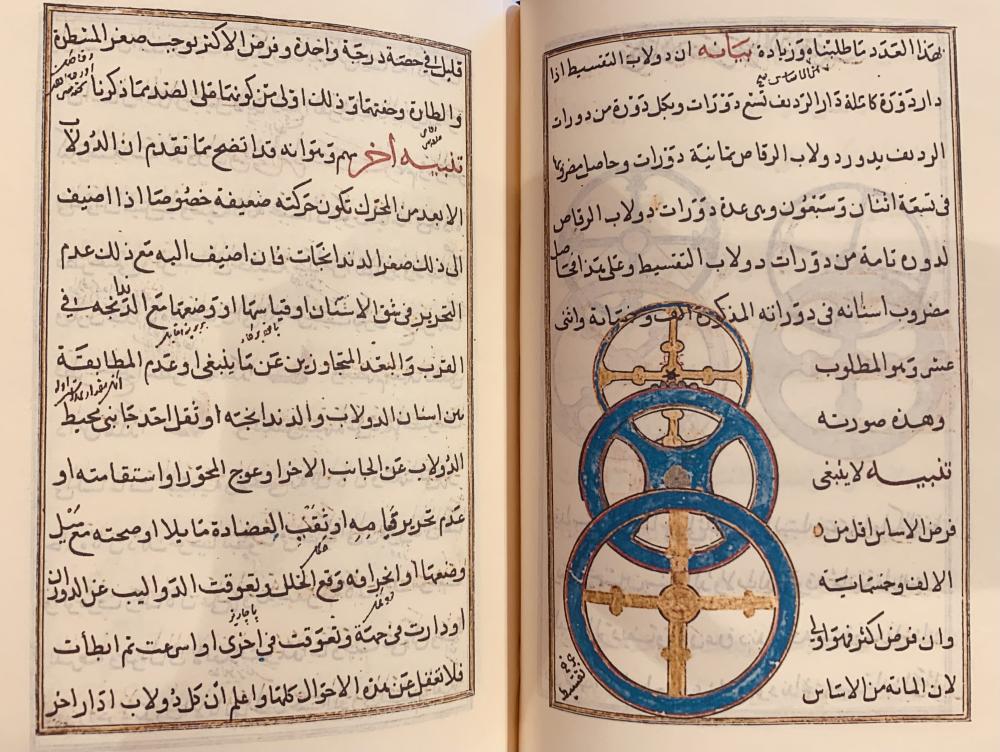 بهذا العدد ما طلبناه وزيادة بيانه ان دولاب التقسيط اذا
دار دورة كاملة دار الرديف تسع دورات وبكل دورة من دورات
الرديف يدور دولاب الرقاص ثمانية دورات وحاصل مضروبها
فى تسعة اثنان وسبعون وهى عدة دورات دولاب الرقاص
لدوره تامة من دورات دولاب التقسيط وعلى هذا فحاصل
مضروب اسنانه فى دوراته المذكورة الف وخمسمائة واثنى
عشر وهو المطلوب
وهذه صورته
تنبيه لا ينبغى
فرض الاساس اقل من
الالف وخمسمائة
وان فرض اكثر فهو اولى
لان المائة من الاساس
التقسيط
قليل فى حصة درجة واحدة وفرض الاكثر يوجب صغر المنطرة
والطارة وخفتها وذلك اولى من كونها على الضد مما ذكرنا
تنبيه أخر مهم وهو انه قد اتضح مما تقدم ان الدولاب
الابعد من المحرك تكون حركته ضعيفة خصوصا اذا اضيف
الى ذلك صغر الدندانجات فان اضيف اليه مع ذلك عدم
التحرير فى شق الاسنان او قياسها او وضعها مع الدنجه فى
القرب والبعد المتجاوزين عن ما ينبغى او عدم المطابقة
بين اسنان الدولاب والدندانجته او ثقل احد جانبى محيط
الدولاب عن الجانب الاخر او عوج المحور او استقامته او
عدم تحرير قيامه او ثقب العضادة مايلا او صحته مع ميل
وضعها او انحرافه وقع الخلل وتعوقت الدواليب عن الدوران
او دارت فى جهة وتعوقت فى اخرى او اسرعت ثم ابطأت
فلا تغفل عن هذه الاحوال كلها واعلم ان كل دولاب ادار اخر